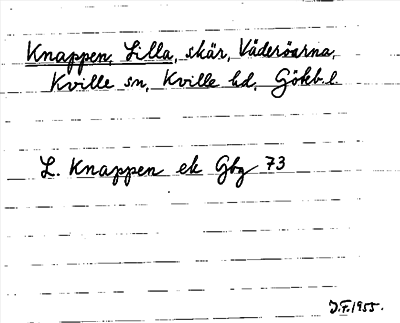 Knappen, Lilla, skär, Väderöarna,
Kville sn, Kville hd, Göteb. l.
L. Knappen ek Gbg 73
J.F. 1955.